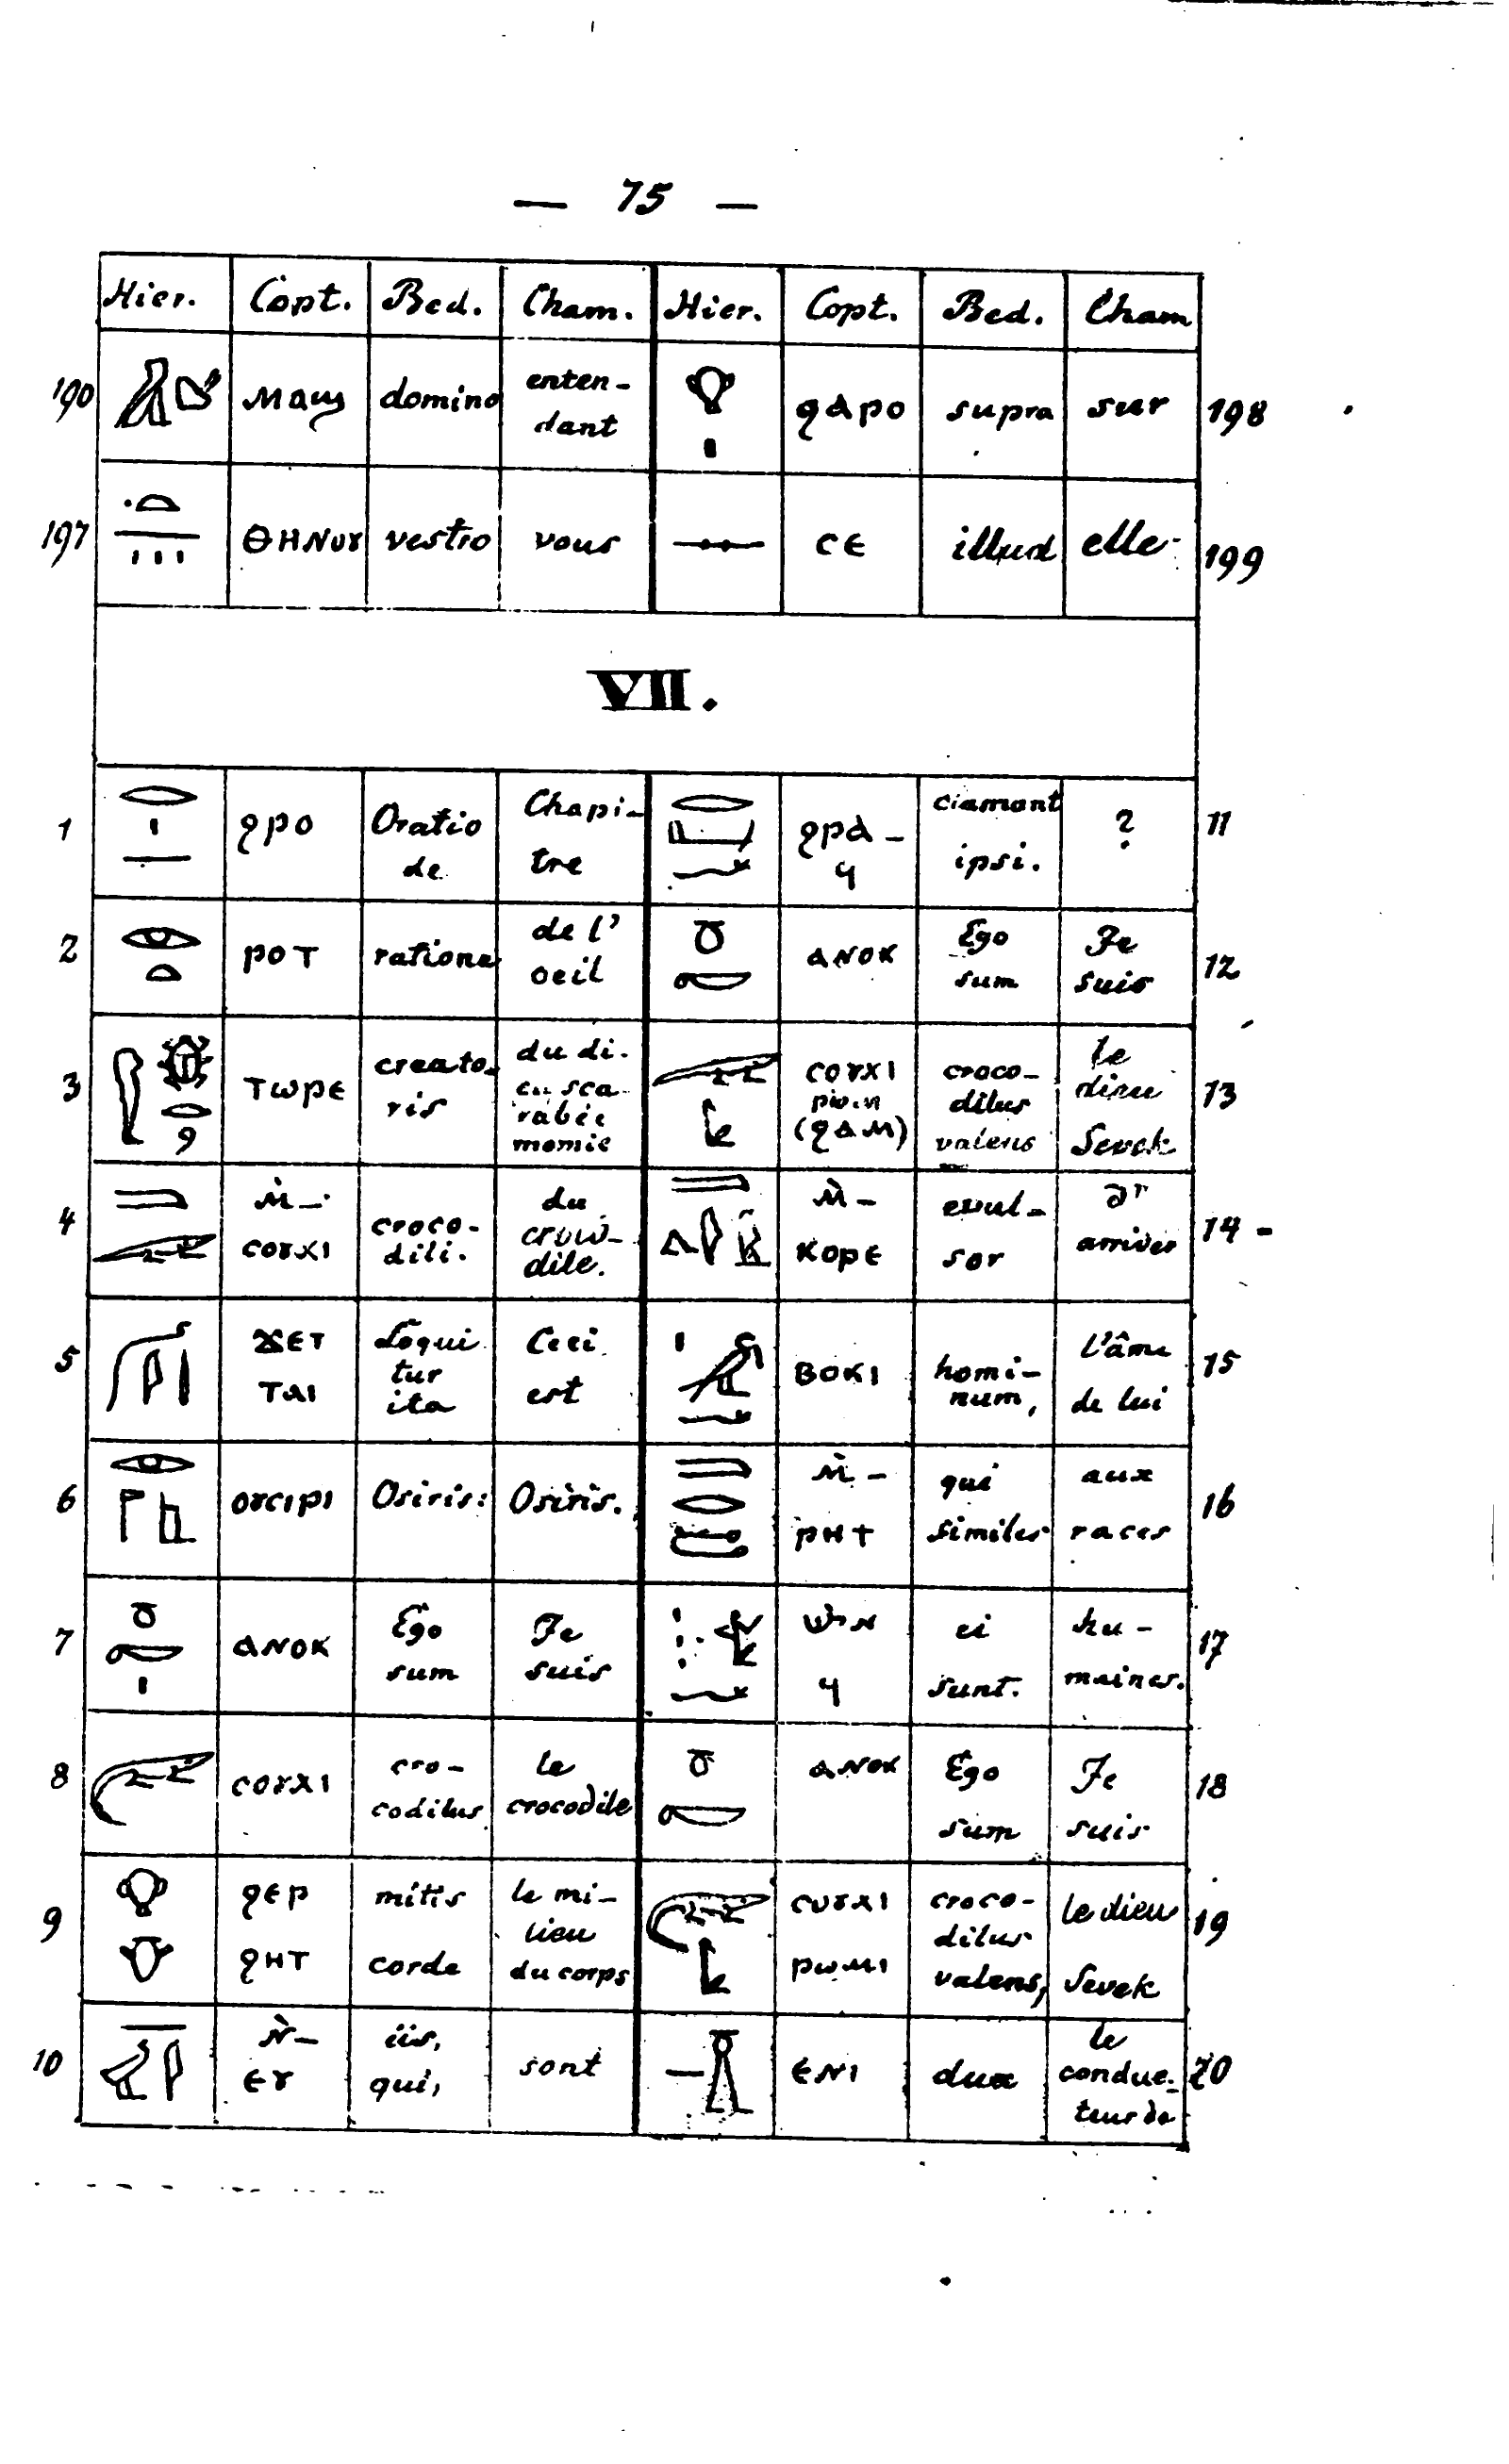 — 75 —
Hier. Copt. Bed. Cham. Hier. Copt. Bed. Cham
190 ⲙⲁϣ domino enten-
dant
ϩⲁⲣⲟ supra sur 198
197 ⲑⲏⲛⲟⲩ vestro vous
ⲥⲉ illud elle 199
VII.
1 ϩⲣⲟ Oratio
de
Chapi-
tre
ϩⲣⲁ-
ϥ
clamant
ipsi.
? 11
2 ⲣⲟⲧ ratione
de l'
oeil
ⲁⲛⲟⲕ Ego
sum
Je
suis
12
3 ⲧⲱⲣⲉ creato-
ris
du di-
eu sca-
rabée
momie
ⲥⲟⲩⲭⲓ
(ϩⲁⲙ)
croco-
dilus
valens
le
dieu
Sevek
13
4 ⲙ̀-
ⲥⲟⲩⲭⲓ
croco-
dili.
du
croco-
dile.
ⲙ̀-
ⲕⲟⲣⲉ
evul-
sor
arriver
14
5 ϫⲉⲧ
ⲧⲁⲓ
Loqui
tur
ita
Ceci
est
ⲃⲟⲕⲓ homi-
num,
l'âme
de lui
15
6 ⲟⲩⲥⲓⲣⲓ Osiris: Osiris.
ⲙ̀-
ⲣⲏϯ
qui
similes
aux
races
16
7 ⲁⲛⲟⲕ Ego
sum
Je
suis
ϥ
ei
sunt.
hu-
maines.
17
8 ⲥⲟⲩⲭⲓ cro-
codilus
le
crocodile
ⲁⲛⲟⲕ Ego
sum
Je
suis
18
9 ϩⲉⲣ
ϩⲏⲧ
mitis
corde
le mi-
lieu
du corps
ⲥⲟⲩⲭⲓ
ⲣⲱⲙⲓ
croco-
dilus
valens,
le dieu
Sevek
19
10 ⲛ̀-
ⲉⲩ
iis,
qui,
sont
ⲉⲛⲓ dux
le
conduc-
teur de
20